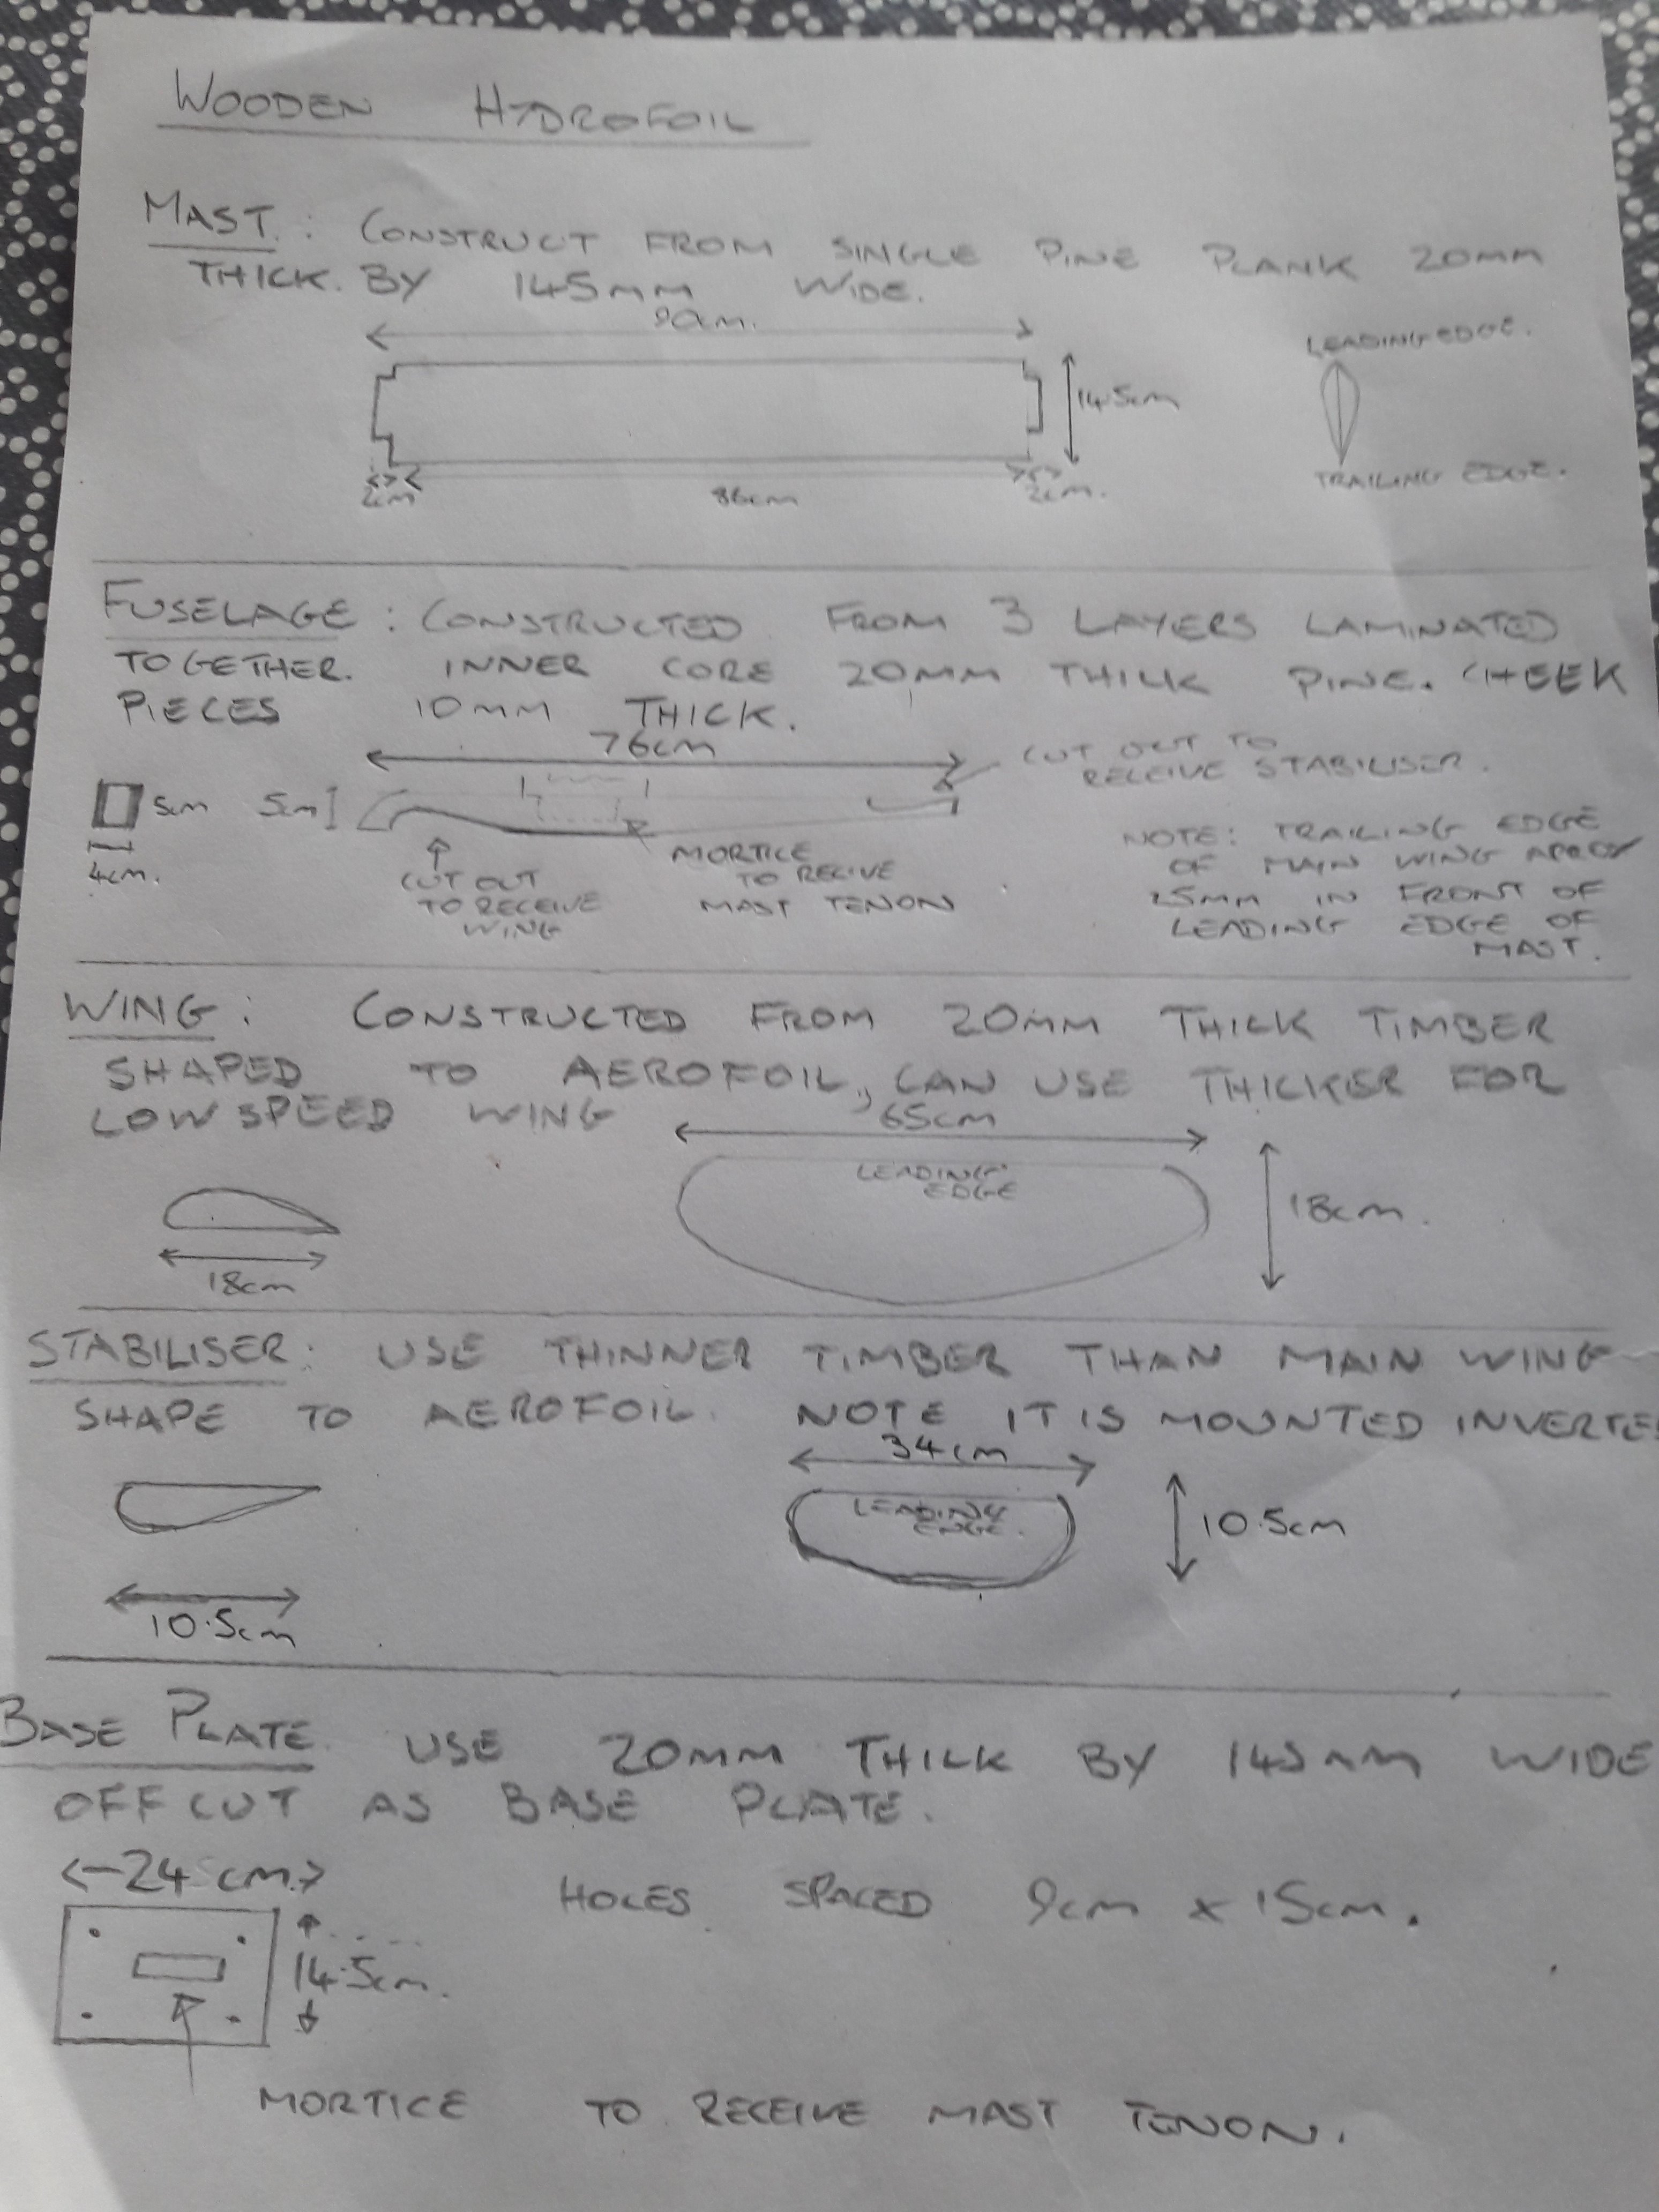 WOODEN HYDROFOIL
MAST: CONSTRUCT FROM SINGLE PINE PLANK 20mm
THICK. BY 145mm WIDE.
90cm.
LEADING EDGE.
14.5cm
TRAILING EDGE.
2cm
86cm
2cm.
FUSELAGE: CONSTRUCTED FROM 3 LAYERS LAMINATED
TOGETHER. INNER CORE 20MM THICK PINE. CHEEK
PIECES 10MM THICK.
76cm
CUT OUT TO
RECEIVE STABILISER.
5cm
5cm
4cm.
CUT OUT
TO RECEIVE
WING
MORTICE
TO RECIVE
MAST TENON
NOTE: TRAILING EDGE
OF MAIN WING APROX
25mm IN FRONT OF
LEADING EDGE OF
MAST.
WING: CONSTRUCTED FROM 20MM THICK TIMBER
SHAPED TO AEROFOIL, CAN USE THICKER FOR
LOW SPEED WING
65cm
LEADING
EDGE
18cm.
18cm
STABILISER: USE THINNER TIMBER THAN MAIN WING
SHAPE TO AEROFOIL. NOTE IT IS MOUNTED INVERTE
34cm
LEADING
EDGE.
10.5cm
10.5cm
BASE PLATE. USE 20MM THICK BY 145mm WIDE
OFF CUT AS BASE PLATE.
24cm.
HOLES SPACED 9cm x 15cm.
14.5cm.
MORTICE TO RECEIVE MAST TENON.